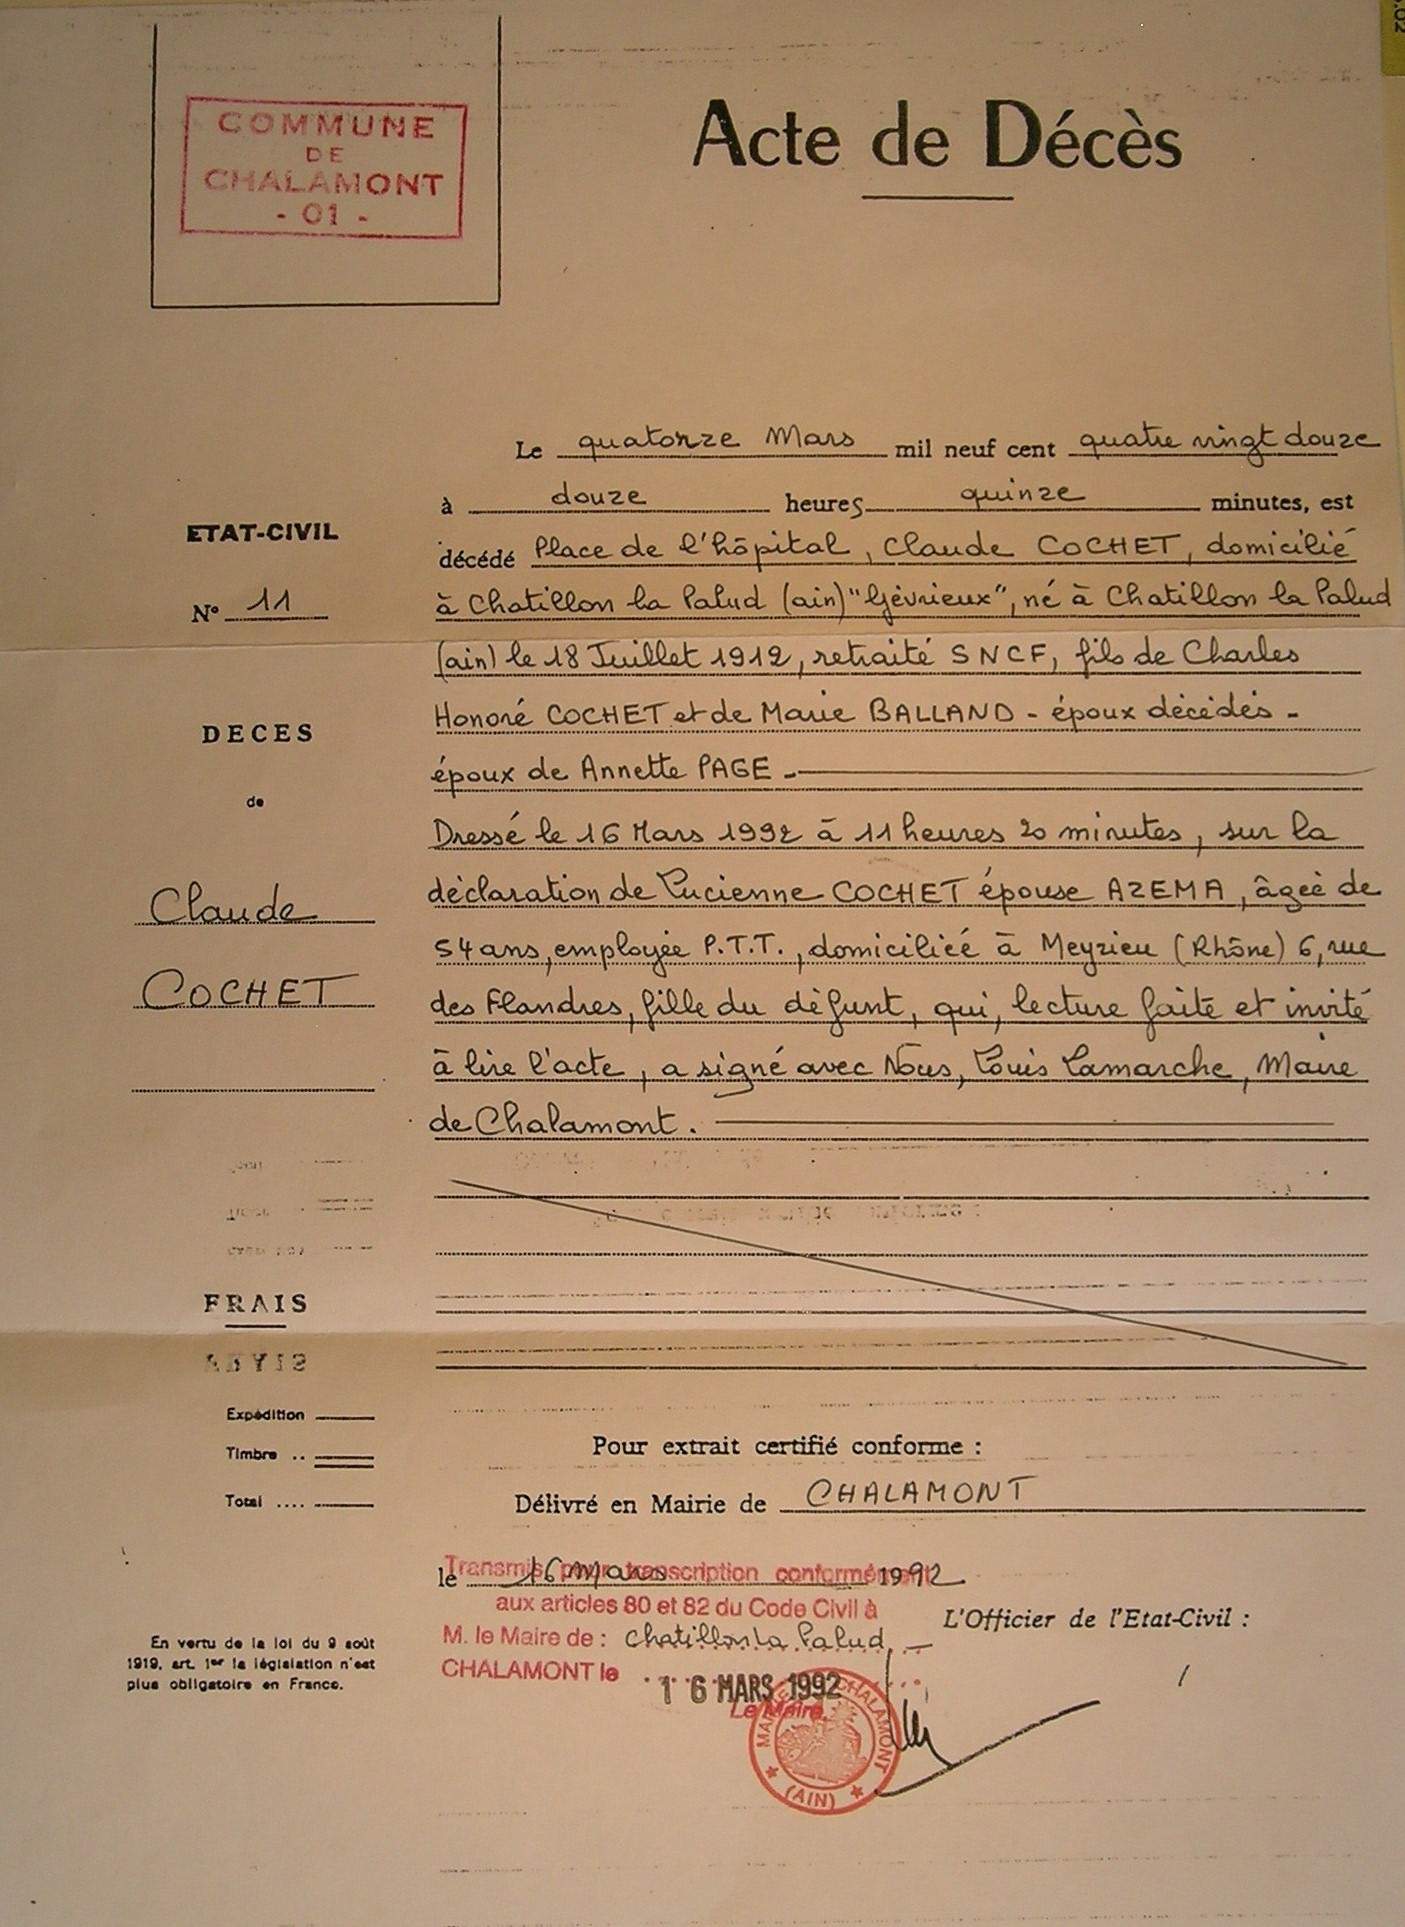 COMMUNE
DE
CHALAMONT
- 01 -
Acte de Décès
Le quatorze Mars mil neuf cent quatre vingt douze
à douze heures quinze minutes, est
décédé Place de l'hôpital, Claude COCHET, domicilié
à Chatillon la Palud (ain) "Gévrieux", né à Chatillon la Palud
(ain) le 18 Juillet 1912, retraité SNCF, fils de Charles
Honoré COCHET et de Marie BALLAND - époux décédés -
époux de Annette PAGE -
Dressé le 16 Mars 1992 à 11 heures 20 minutes, sur la
déclaration de Lucienne COCHET épouse AZEMA, âgée de
54 ans, employée P.T.T., domiciliée à Meyzieu (Rhône) 6, rue
des Flandres, fille du défunt, qui, lecture faite et invité
à lire l'acte, a signé avec Nous, Louis Lamarche, Maire
de Chalamont.
ETAT-CIVIL
N° 11
DECES
de
Claude
COCHET
FRAIS
Expédition
Timbre ..
Total ....
En vertu de la loi du 9 août
1919, art. 1er la législation n'est
plus obligatoire en France.
Pour extrait certifié conforme :
Délivré en Mairie de CHALAMONT
le 16 Mars 1992
Transmis pour transcription conformément
aux articles 80 et 82 du Code Civil à
M. le Maire de : Chatillon La Palud
CHALAMONT le 16 MARS 1992
Le Maire,
L'Officier de l'Etat-Civil :
MAIRIE DE CHALAMONT
(AIN)